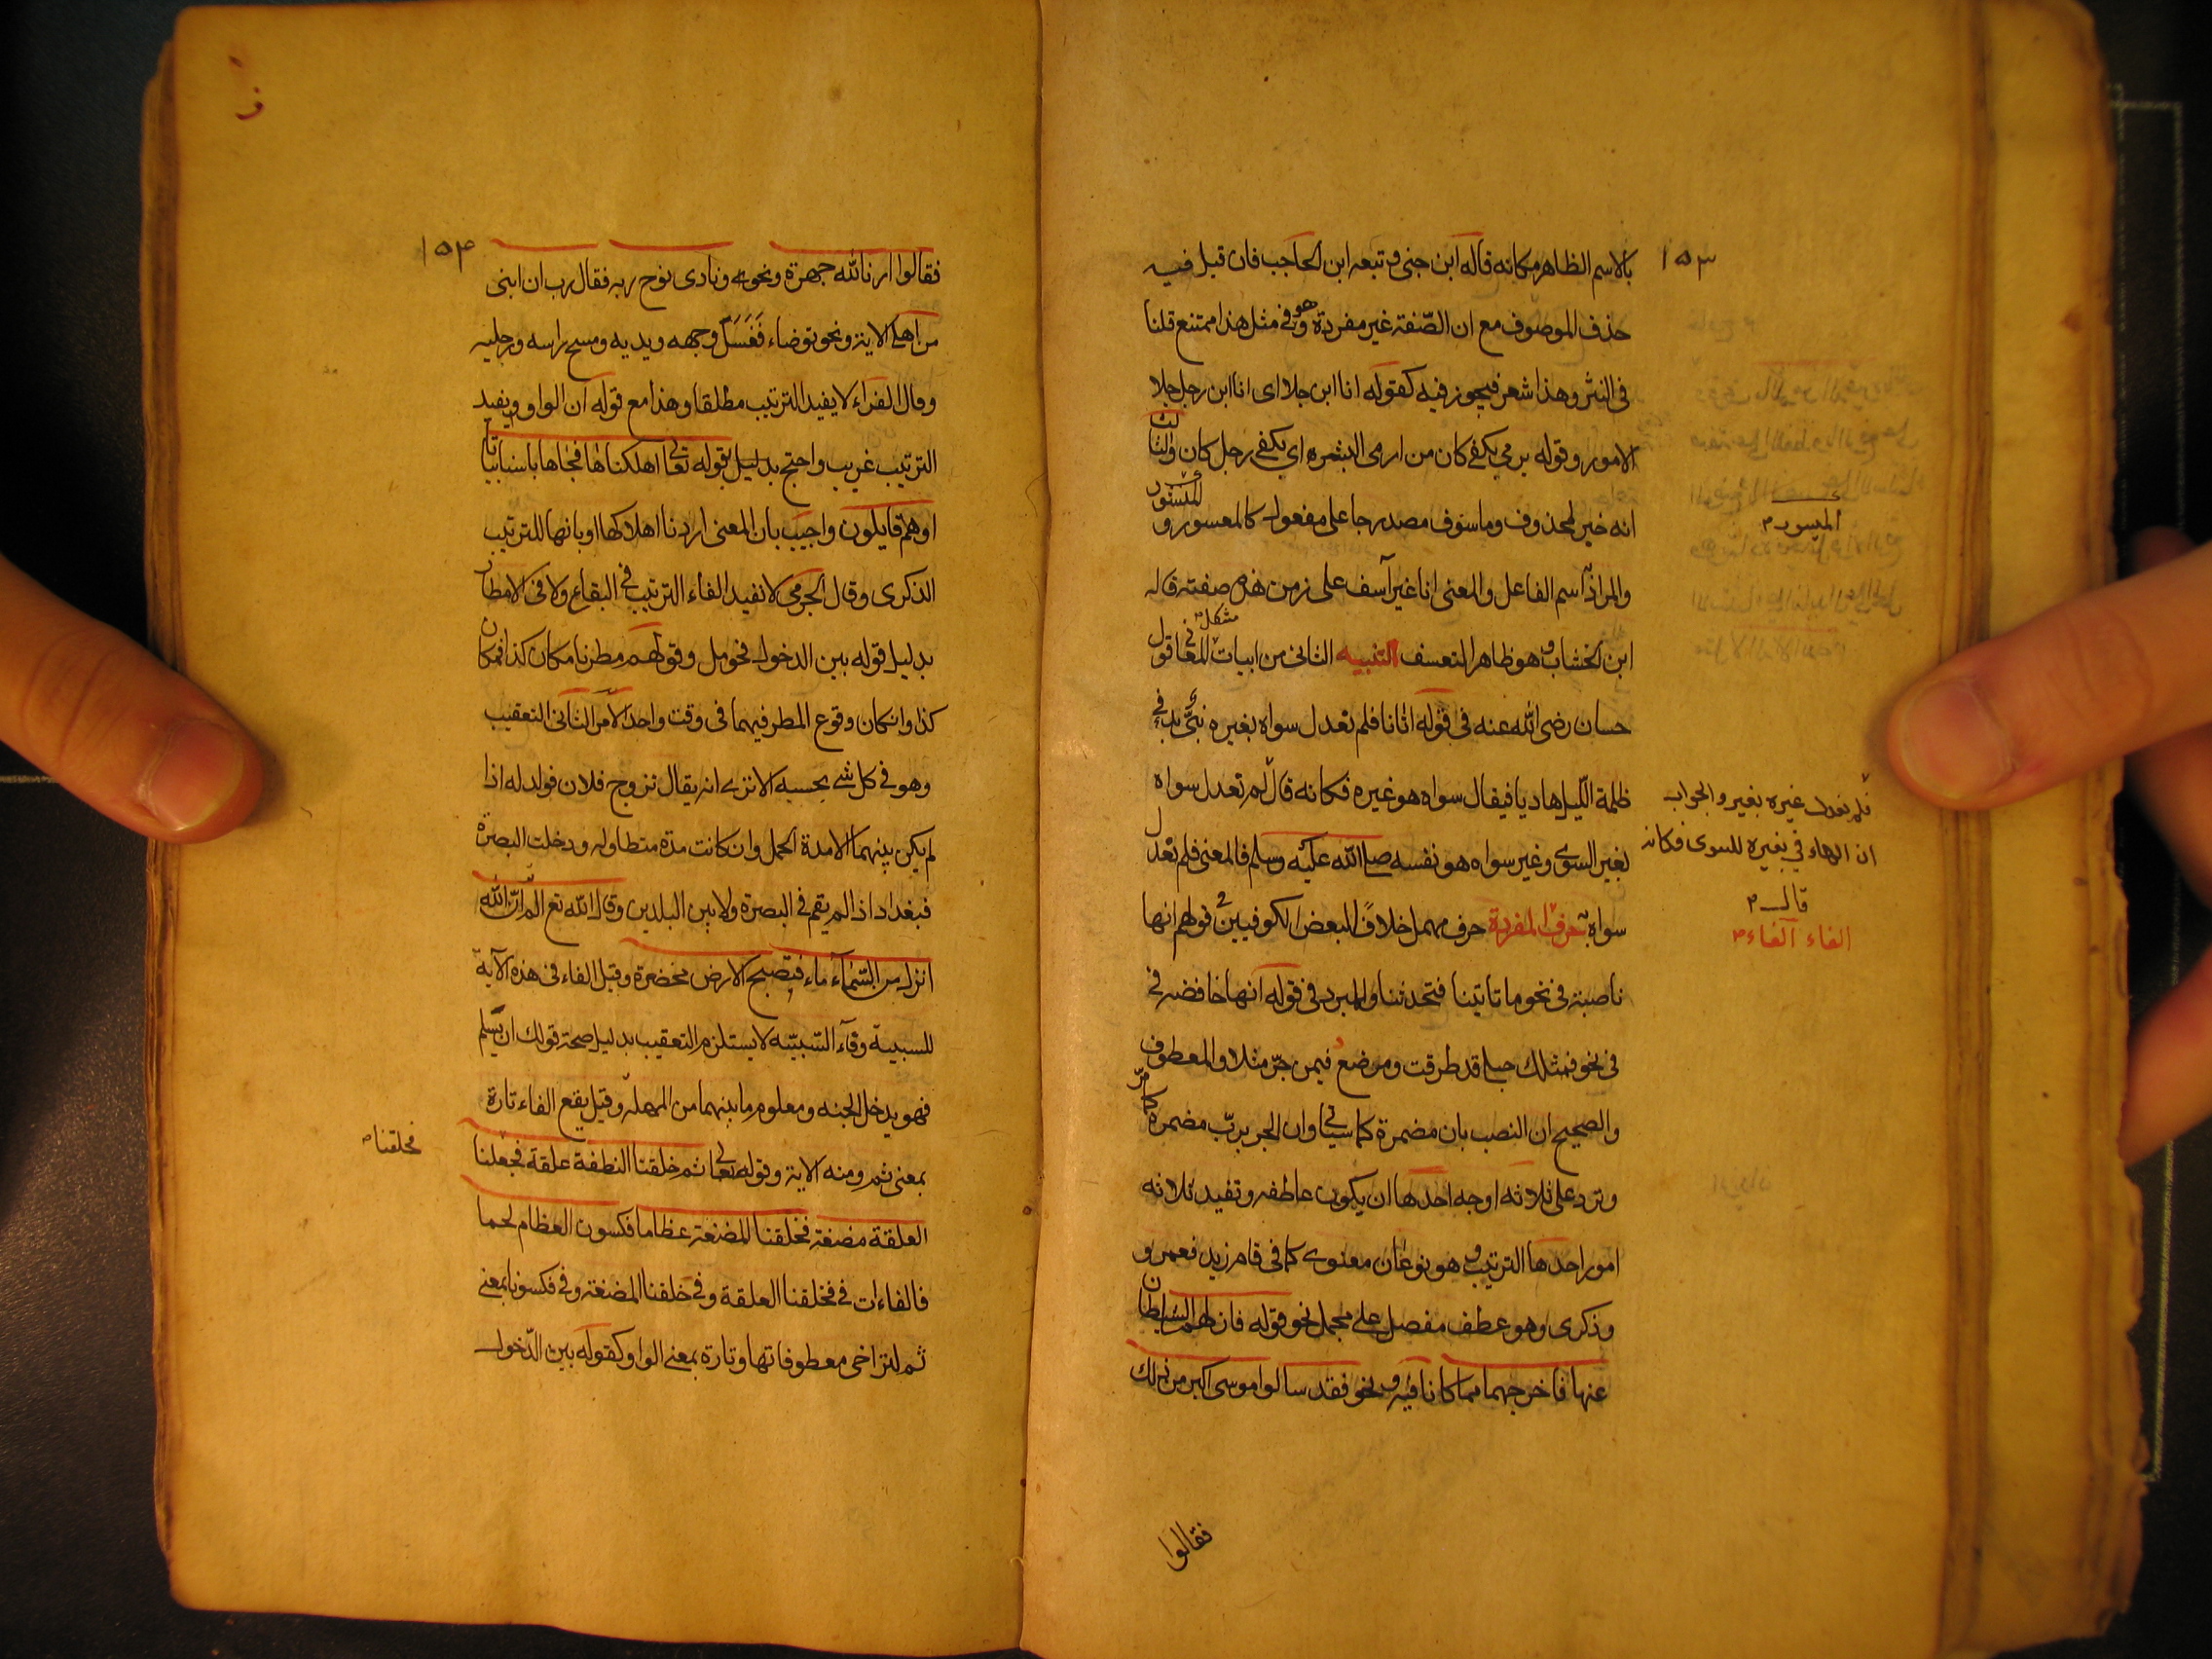 ١٥٣
بالاسم الظاهر مكانه قاله ابن جنى وتبعه ابن الحاجب فان قيل فيه
حذف الموصوف مع ان الصّفة غير مفردة وهو فى مثل هذا ممتنع قلنا
فى النثر وهذا شعر فيجوز فيه كقوله انا ابن جلا اى انا ابن رجل جلا
الامور وقوله يرمي بكفي كان من ارمى البشره اي بكفي رجل كان والثالث
انه خبر لمحذوف وماسوف مصدر جا على مفعول كالمعسور و الميسور
والمراد اسم الفاعل والمعنى انا غير آسف على زمن هذه صفته قاله
ابن الخشاب وهو ظاهر التعسف التنبيه الثانى من ابيات المعا قول
مشكل
حسان رضى الله عنه فى قوله اتانا فلم نعدل سواه بغيره نبيّ بدا في
ظلمة اللّيل هاديا فيقال سواه هو غيره فكانه قال لم نعدل سواه
بغير السوى وغير سواه هو نفسه صلى الله عليه وسلم فالمعنى فلم نعدل
سواه به حرف المفردة حرف مهمل خلافًا لبعض الكوفيين فى قولهم انها
ناصبة فى نحو ما تاتينا فتحدثنا وللمبرد فى قوله انها خافضه فى
فى نحو فمثلك حبلى قد طرقت ومرضع فيمن جرّ مثلا والمعطوف
والصحيح ان النصب بان مضمرة كما سياتي وان الجر بربّ مضمرة كما مرّ
وترد على ثلاثه اوجه احدها ان يكون عاطفه وتفيد ثلاثه
امور احدها الترتيب وهو نوعان معنوى كما فى قام زيد فعمرو
وذكرى وهو عطف مفصل على مجمل نحو قوله فازلهما الشيطان
عنها فاخرجهما مما كانا فيه ونحو فقد سالوا موسى اكبر من ذلك
فقالوا
الميسور م
فلم نعدل غيره بغير والجواب
ان الهاء في بغيره للسوى فكانه
قال م
الفاء الفاء م
١٥٤
فقالوا ارنا الله جهرة ونحوه ونادى نوح ربه فقال رب ان ابنى
من اهلى الاية ونحو توضاء فَغَسَلَ وجهه ويديه ومسح راسه ورجليه
وقال الفراء لا يفيد الترتيب مطلقا وهذا مع قوله ان الواو ويفيد
الترتيب غريب واحتج بدليل بقوله تعالى اهلكناها فجاها باسنا بياتا
اوهم قايلون واجيب بان المعنى اردنا اهلاكها او بانها للترتيب
الذكرى وقال الجرمي لا تفيد الفاء الترتيب فى البقاع ولا فى الامطار
بدليل قوله بين الدخول فحومل وقولهم مطرنا مكان كذا فمكان
كذا وان كان وقوع المطر فيهما فى وقت واحد الامر الثانى التعقيب
وهو فى كل شى بحسبه الا ترى انه يقال تزوج فلان فولد له اذا
لم يكن بينهما الا مدة الحمل وان كانت مدة متطاوله ودخلت البصرة
فبغداد اذا لم يقم فى البصرة ولا بين البلدين وقال الله تع الم ترا ان الله
انزل من السّمآء ماء فتصبح الارض مخضرة وقيل الفاء فى هذه الآية
للسببية وفآء السّببيّه لا يستلزم التعقيب بدليل صحة قولك ان يسلم
فهو يدخل الجنه ومعلوم ما بينهما من المهلة وقيل يقع الفاء تارة
بمعنى ثم ومنه الاية وقوله تعالى ثم خلقنا النطفة علقة فجعلنا
فخلقنا م
العلقة مضغة فخلقنا المضغة عظاما فكسون العظام لحما
فالفاءات فى فخلقنا العلقة وفى خلقنا المضغة وفى فكسونا بمعنى
ثم لتراخى معطوفاتها وتارة بمعنى الواو كقوله بين الدّخول